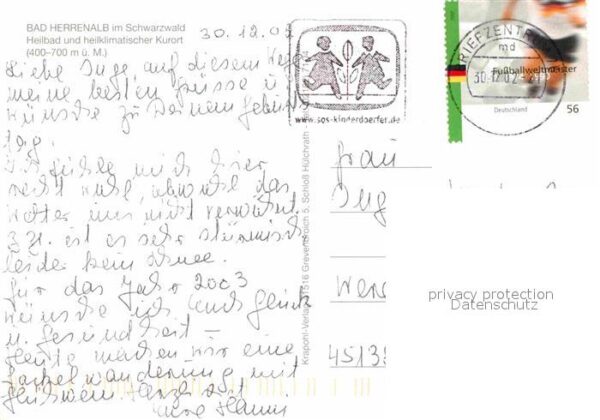 BAD HERRENALB im Schwarzwald
Heilbad und heilklimatischer Kurort
(400-700 m ü. M.)
30.12.02
Liebe Inge auf diesem Wege
meine besten Grüsse u.
wünsche zu Deinem Geburts
tag.
Ich fühle mich hier
recht wohl, obwohl das
Wetter uns nicht verwöhnt.
z. Zt. ist es sehr stürmisch
leider kein Schnee.
Für das Jahr 2003
wünsche ich Euch Glück
u. Gesundheit –
Heute machen wir eine
Fackelwanderung mit
Glühwein
Eure Hanni
www.sos-kinderdoerfer.de
BRIEFZENTRUM
md
30.12.02
Fußballweltmeister
Deutschland
56
Schloß Hülchrath
Frau
Inge
45133
privacy protection
Datenschutz